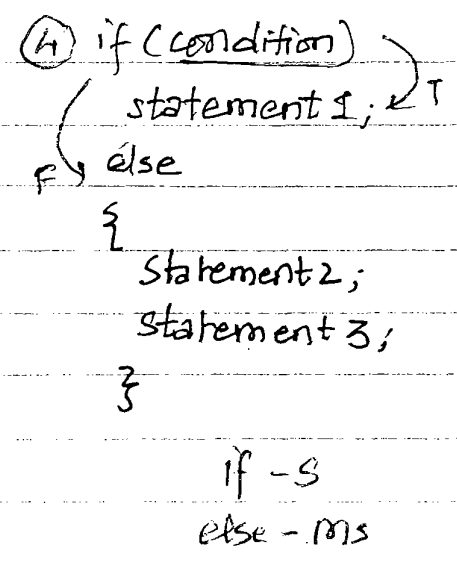 4 if (condition)
statement 1; T
F else
{
Statement 2;
Statement 3;
}
if - S
else - ms